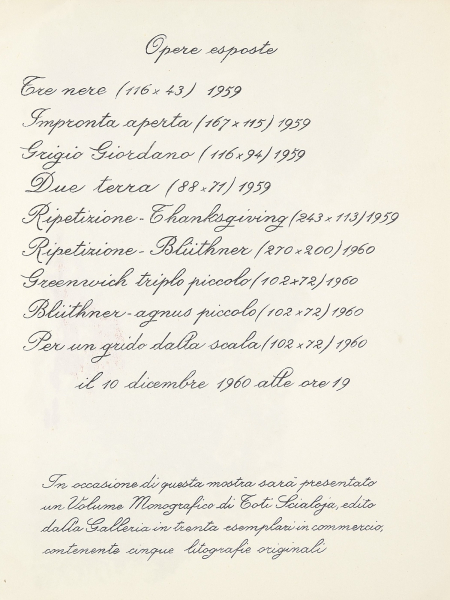 Opere esposte
Tre nere (116 x 43) 1959
Impronta aperta (167 x 115) 1959
Grigio Giordano (116 x 94) 1959
Due terra (88 x 71) 1959
Ripetizione - Thanksgiving (243 x 113) 1959
Ripetizione - Blüthner (270 x 200) 1960
Greenwich triplo piccolo (102 x 72) 1960
Blüthner - agnus piccolo (102 x 72) 1960
Per un grido dalla scala (102 x 72) 1960
il 10 dicembre 1960 alle ore 19
In occasione di questa mostra sarà presentato
un Volume Monografico di Toti Scialoja, edito
dalla Galleria in trenta esemplari in commercio,
contenente cinque litografie originali